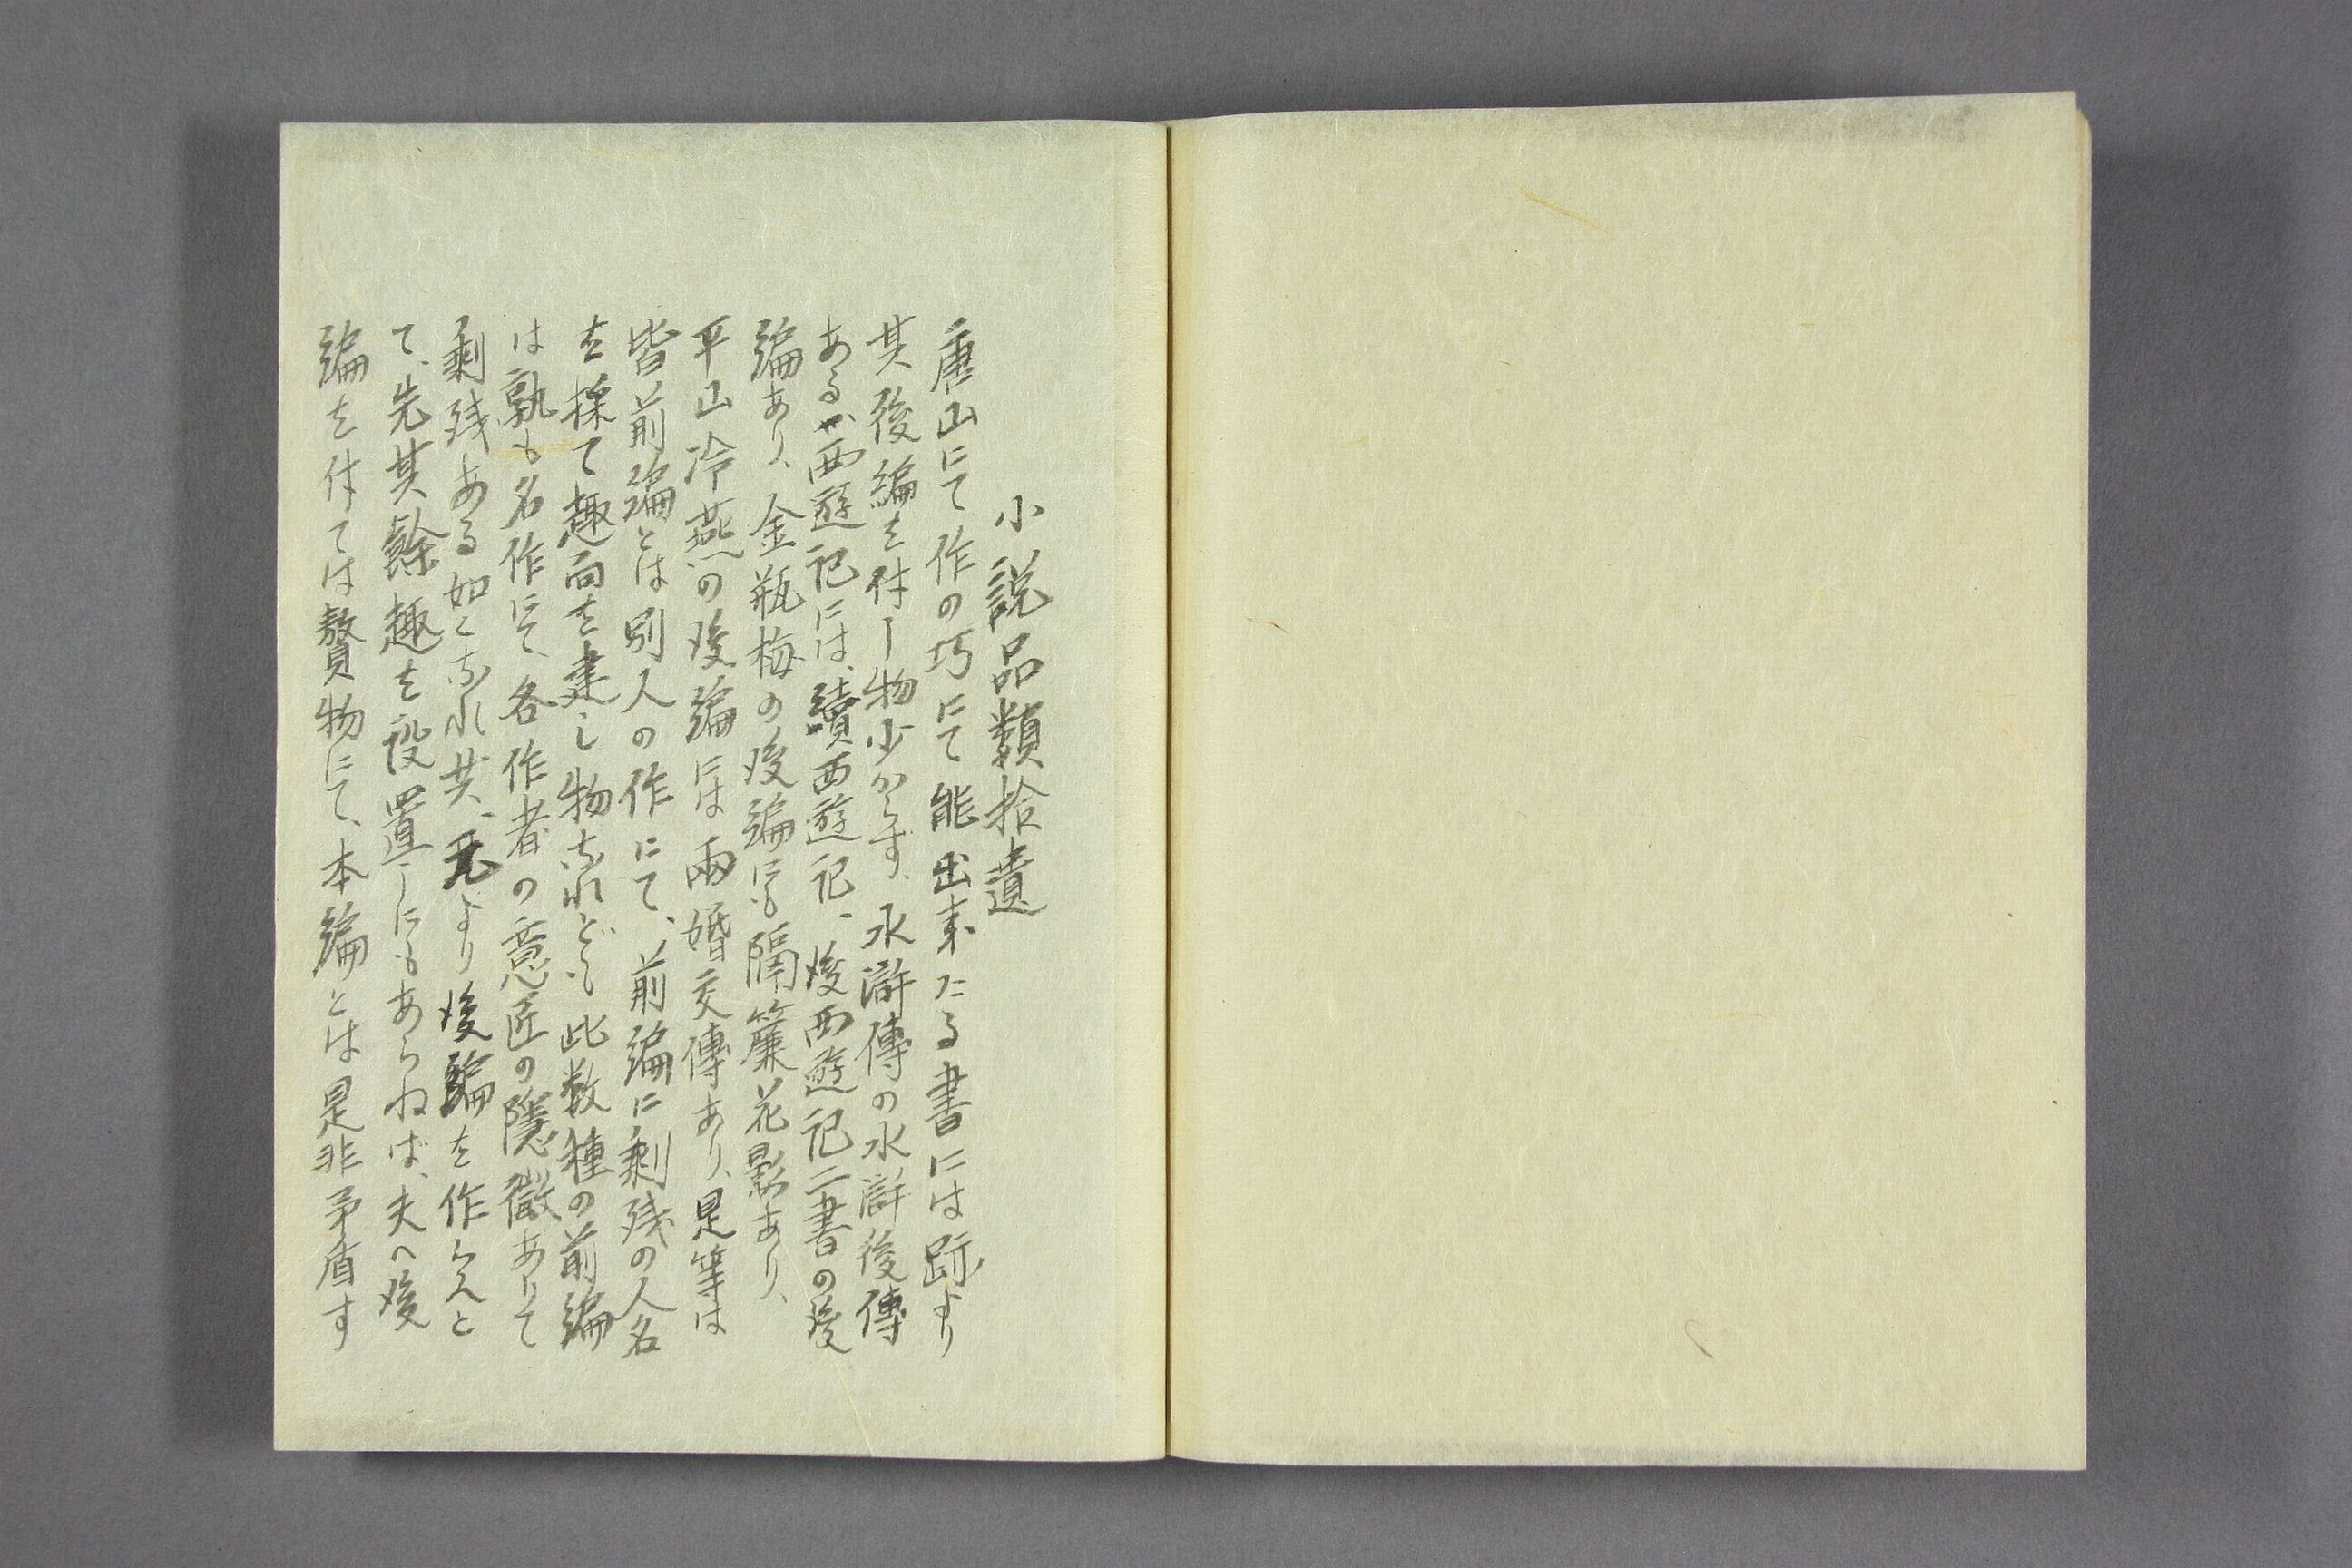 小説品類拾遺
唐山にて作の巧にて能出来たる書には跡より
其後編を付し物少からず、水滸傳の水滸後傳
あるが西遊記には、續西遊記、後西遊記二書の後
編あり、金瓶梅の後編にも隔簾花影あり、
平山冷燕の後編には兩婚交傳あり、是等は
皆前編とは別人の作にて、前編に剰残の人名
を採て趣向を建し物なれども此数種の前編
は孰も名作にて、各作者の意匠の隱微ありて
剰残ある如くなれ共、元より後編を作らんと
て、先其餘趣を設置しにもあらねば、夫へ後
編を付ては贅物にて、本編とは是非矛盾す